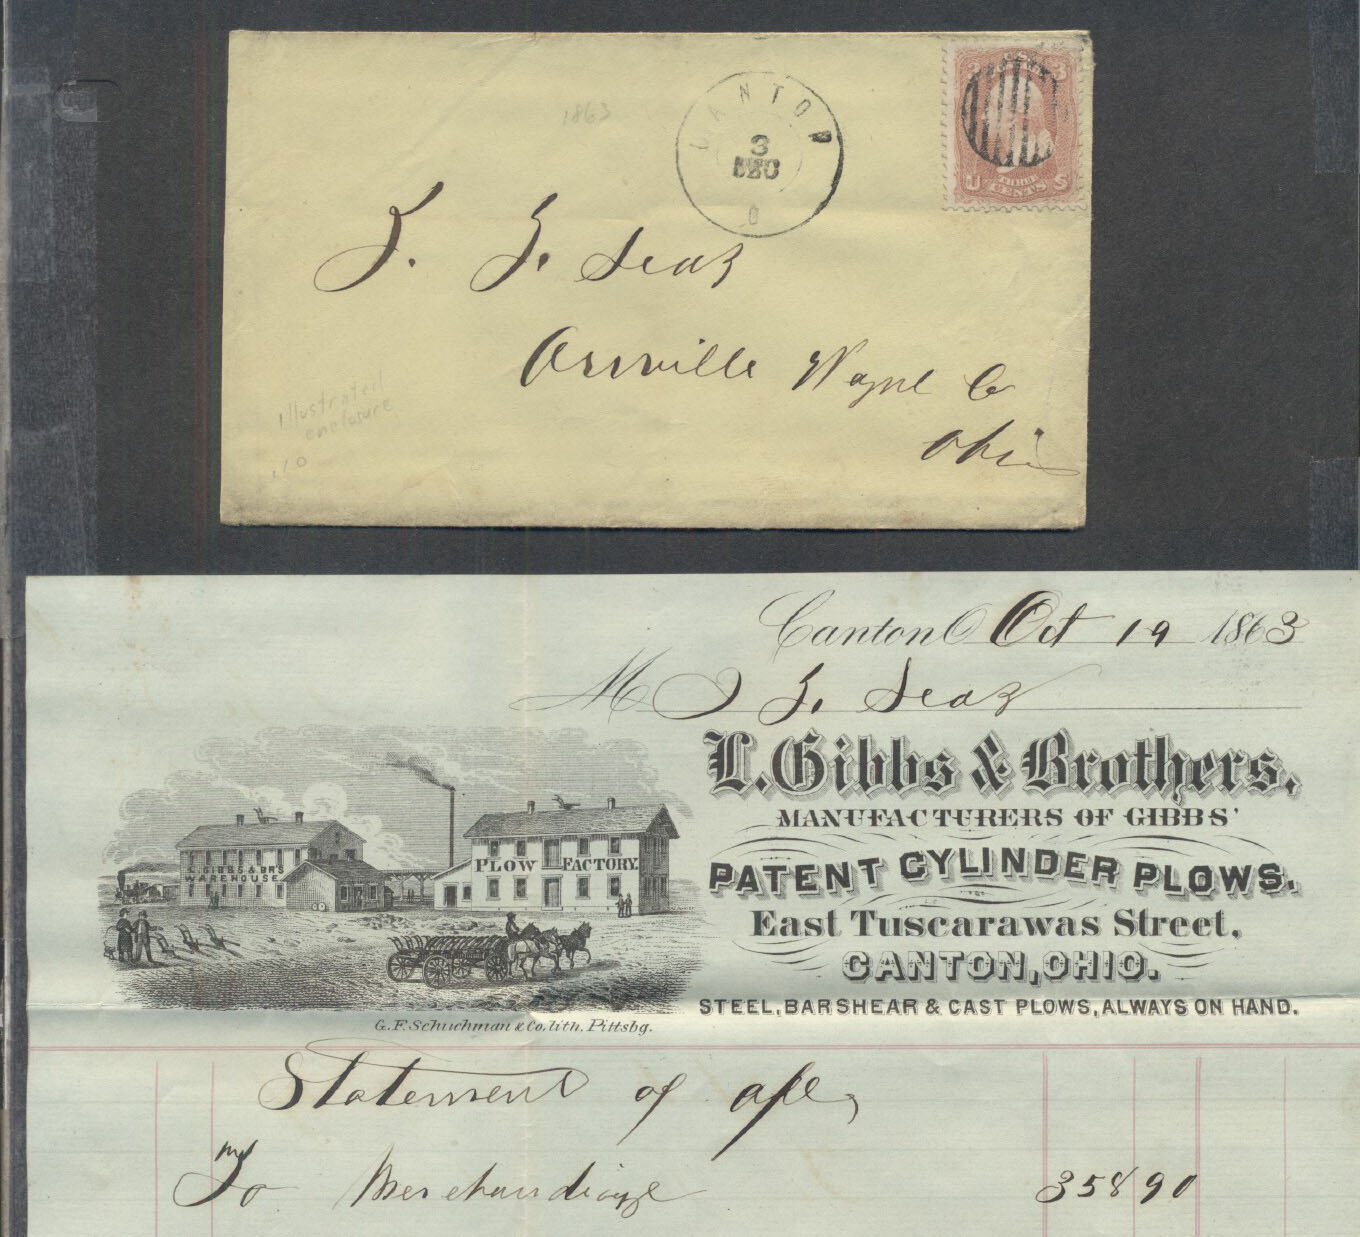 1863
CANTON
3
DEC
O
U S
THREE
CENTS
J. Z. Seaz
Orrville Wayne Co
Ohio
illustrated
enclosure
.10
Canton O Oct 19 1863
M J Z. Seaz
L. Gibbs & Brothers,
MANUFACTURERS OF GIBBS'
PATENT CYLINDER PLOWS.
East Tuscarawas Street,
CANTON, OHIO.
STEEL, BARSHEAR & CAST PLOWS, ALWAYS ON HAND.
L. GIBBS & BR'S
WAREHOUSE
PLOW FACTORY.
G. F. Schuchman & Co. lith. Pittsbg.
Statement of a/c,
To Merchandize 358 90